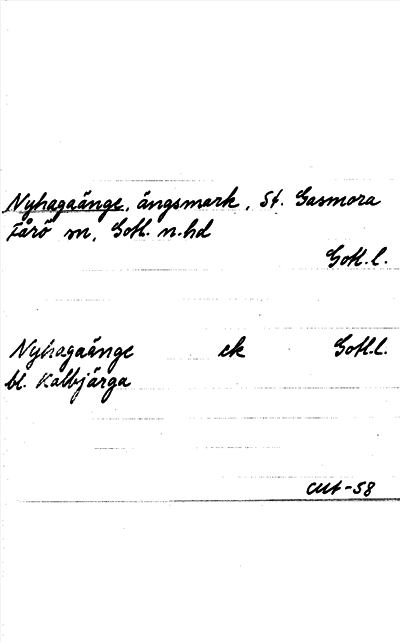 Nyhagaänge, ängsmark, St. Gasmora
Fårö sn, Gotl. n. hd
Gotl. l.
Nyhagaänge ek Gotl. l.
bl. Kalbjärga
-58